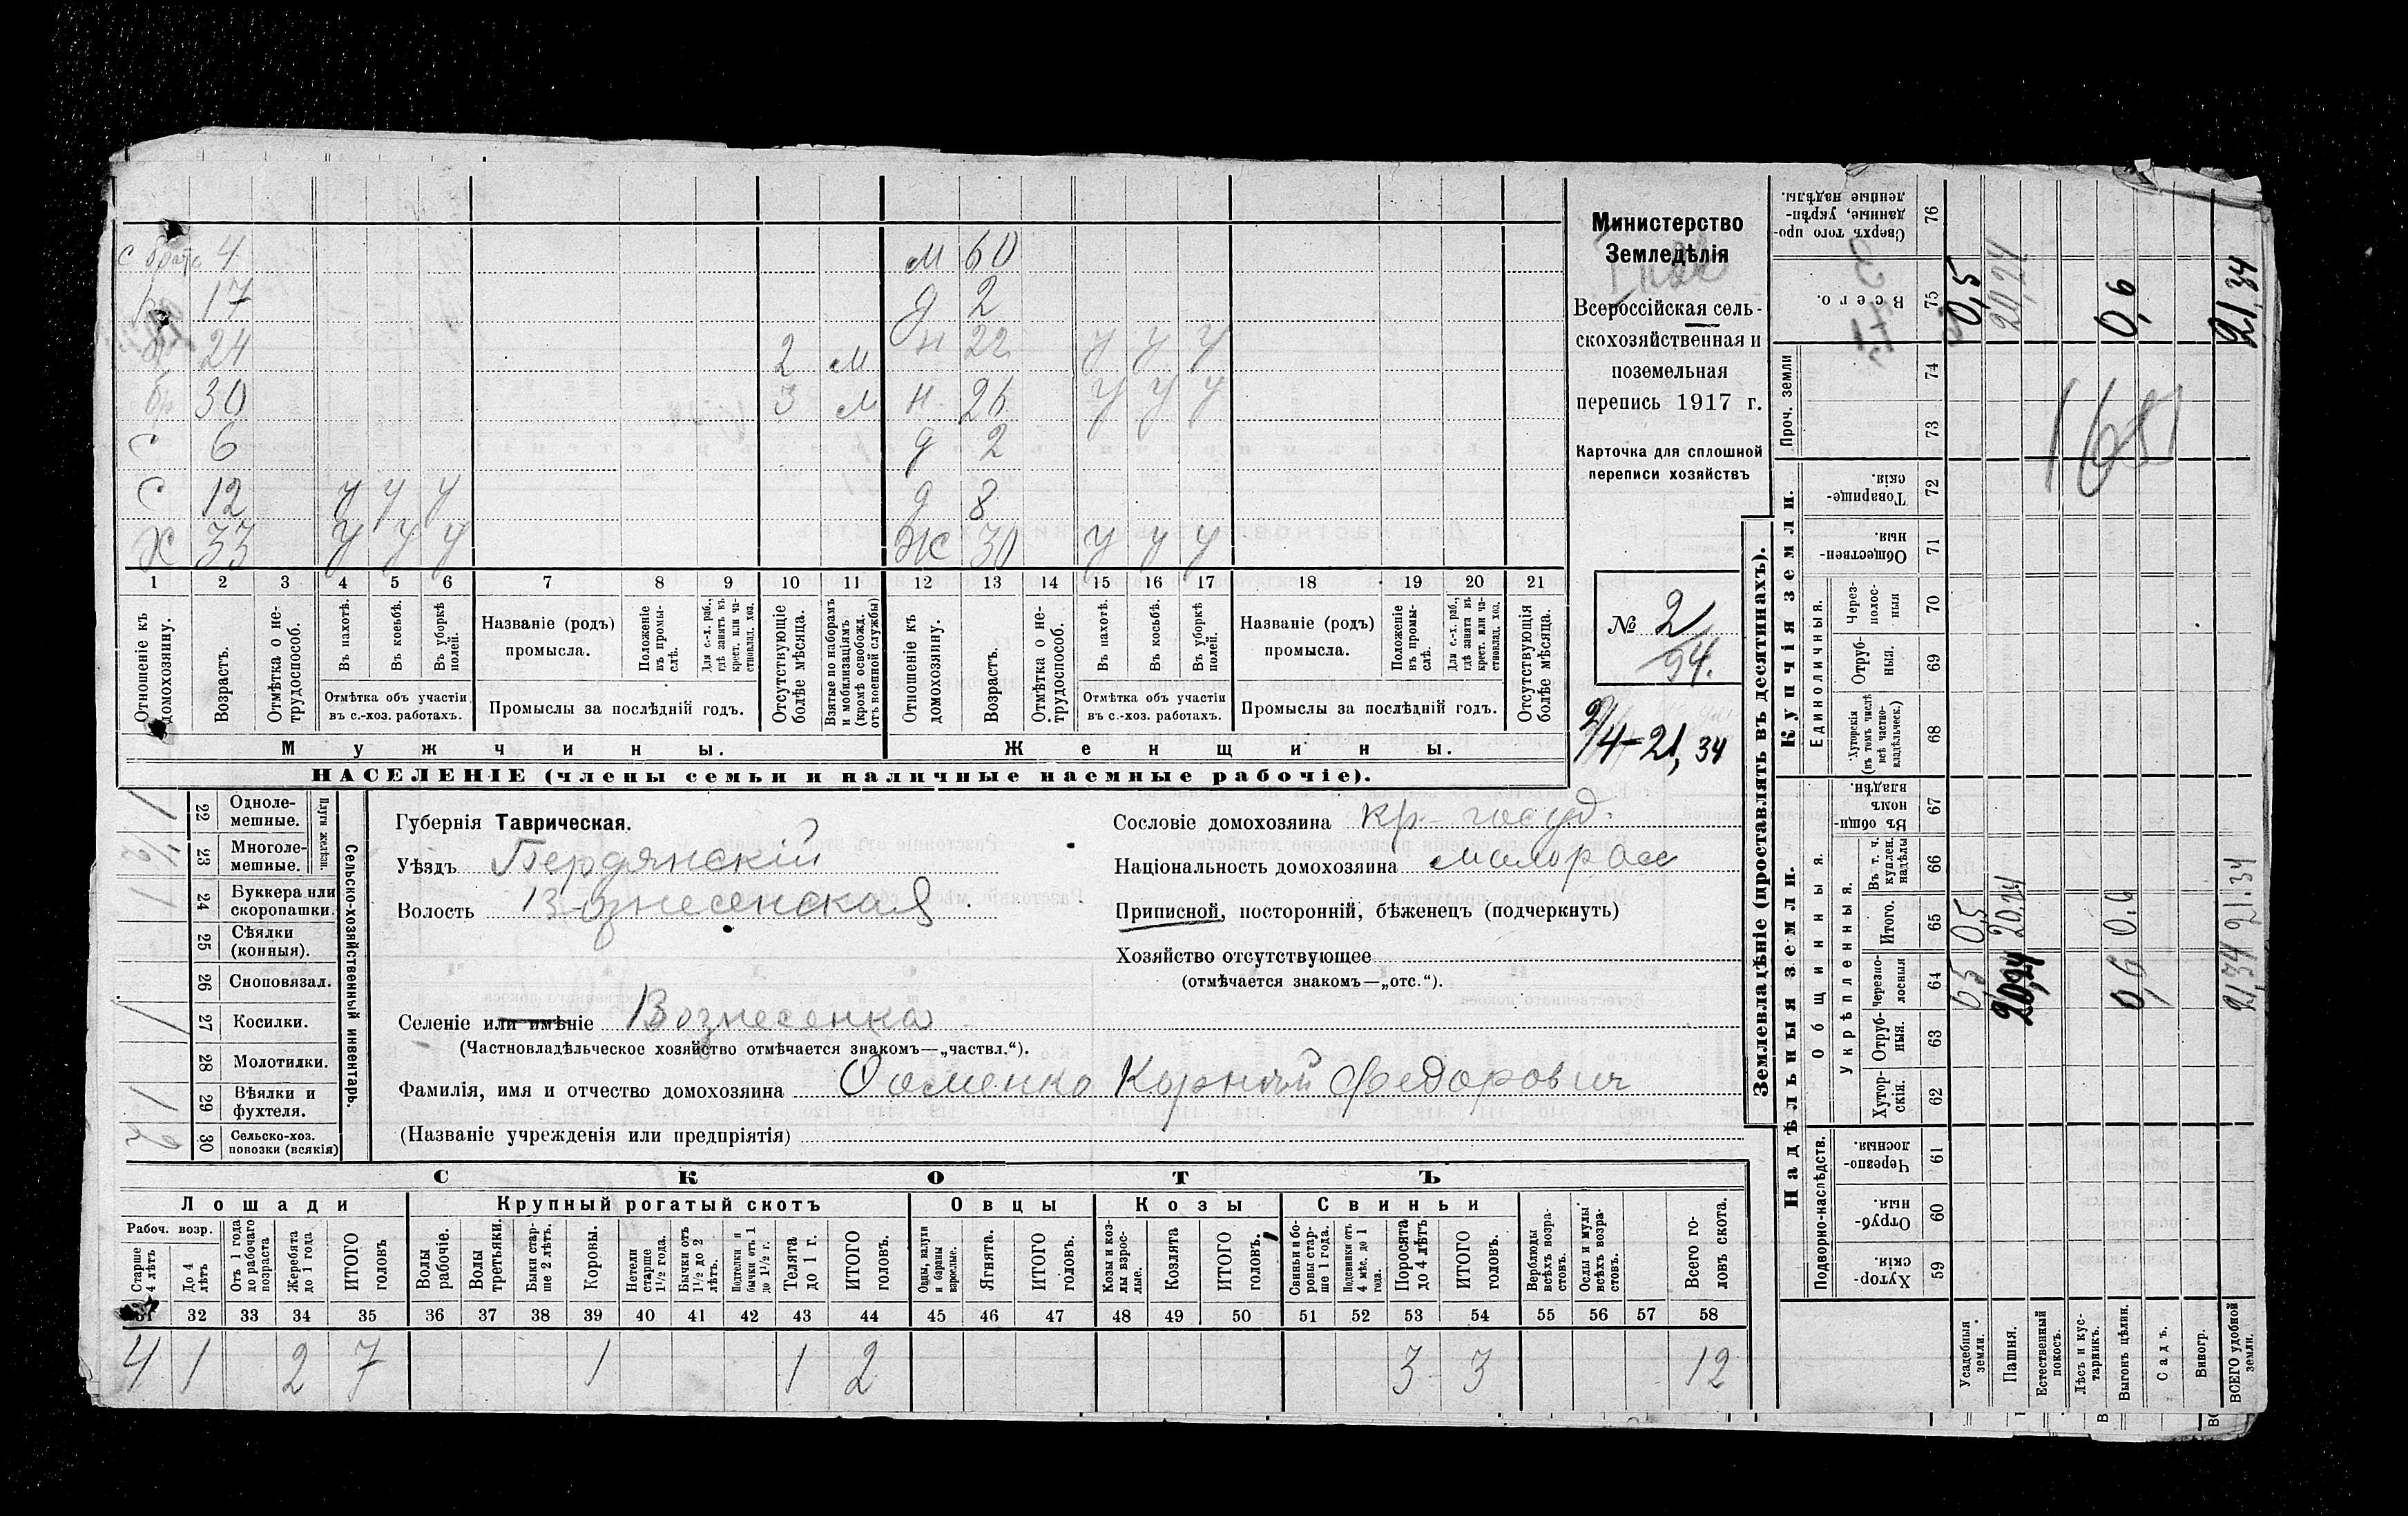 с брата 4 м 60
б 17 д 2
б 24 2 м н 22 у у у
б 30 3 м н 26 у у у
с 6 д 2
с 12 у у у д 8
х 33 у у у ж 30 у у у
1 2 3 4 5 6 7 8 9 10 11 12 13 14 15 16 17 18 19 20 21
Отношеніе къ домохозяину.
Возрастъ.
Отмѣтка о не-трудоспособ.
Въ пахотѣ.
Въ косьбѣ.
Въ уборкѣ полей.
Отмѣтка объ участіи
въ с.-хоз. работахъ.
Названіе (родъ)
промысла.
Положеніе въ промы-слѣ.
Для с.-х. раб., гдѣ занятъ въ крест. или ча-стновлад. хоз.
Промыслы за послѣдній годъ.
Отсутствующіе болѣе мѣсяца.
Взятые по наборамъ и мобилизаціямъ (кромѣ освобожд. отъ военной службы)
Отношеніе къ домохозяину.
Возрастъ.
Отмѣтка о не-трудоспособ.
Въ пахотѣ.
Въ косьбѣ.
Въ уборкѣ полей.
Отмѣтка объ участіи
въ с.-хоз. работахъ.
Названіе (родъ)
промысла.
Положеніе въ промы-слѣ.
Для с.-х. раб., гдѣ занята въ крест. или ча-стновлад. хоз.
Промыслы за послѣдній годъ.
Отсутствующія болѣе мѣсяца.
Мужчины. Женщины.
НАСЕЛЕНІЕ (члены семьи и наличные наемные рабочіе).
Министерство
Земледѣлія
Всероссійская сель-
скохозяйственная и
поземельная
перепись 1917 г.
Карточка для сплошной
переписи хозяйствъ
№ 2
94.
2/4-21,34
Сельско-хозяйственный инвентарь.
Плуги желѣзн.
22 Одноле-мешные. 1
23 Многоле-мешные.
24 Буккера или скоропашки. 1
25 Сѣялки (конныя).
26 Сноповязал.
27 Косилки. 1
28 Молотилки.
29 Вѣялки и фухтеля. 1
30 Сельско-хоз. повозки (всякія) 2
Губернія Таврическая.
Уѣздъ Бердянскій
Волость Вознесенская
Селеніе или имѣніе Вознесенка
(Частновладѣльческое хозяйство отмѣчается знакомъ—„частвл.“).
Фамилія, имя и отчество домохозяина Корній Федорович
(Названіе учрежденія или предпріятія)
Сословіе домохозяина кр госуд.
Національность домохозяина малоросс
Приписной, посторонній, бѣженецъ (подчеркнуть)
Хозяйство отсутствующее
(отмѣчается знакомъ—„отс.“).
СКОТЪ
Лошади Крупный рогатый скотъ Овцы Козы Свиньи
Рабоч. возр.
Старше 4 лѣтъ
До 4 лѣтъ
Отъ 1 года до рабочаго возраста
Жеребята до 1 года
ИТОГО головъ
Волы рабочіе.
Волы третьяки.
Быки стар-ше 2 лѣтъ.
Коровы.
Нетели старше 1½ года.
Бычки отъ 1½ до 2 лѣтъ.
Подтелки и бычки отъ 1 до 1½ г.
Телята до 1 г.
ИТОГО головъ.
Овцы, валухи и бараны взрослые.
Ягнята.
ИТОГО головъ.
Козы и коз-лы взрос-лые.
Козлята
ИТОГО головъ.
Свиньи и бо-ровы стар-ше 1 года.
Подсвинки отъ 4 мѣс. до 1 года.
Поросята до 4 лѣтъ
ИТОГО головъ.
Верблюды всѣхъ возра-стовъ.
Ослы и мулы всѣхъ возра-стовъ.
Всего го-ловъ скота.
31 32 33 34 35 36 37 38 39 40 41 42 43 44 45 46 47 48 49 50 51 52 53 54 55 56 57 58
4 1 2 7 1 1 2 3 3 12
Землевладѣніе (проставлять въ десятинахъ).
Надѣльныя земли. Купчія земли. Проч. земли
Подворно-наслѣдств.
Общинныя.
Укрѣпленныя.
Единоличныя.
Хутор-скія. 59
Отруб-ныя. 60
Черезпо-лосныя. 61
Хутор-скія. 62
Отруб-ныя. 63
Черезпо-лосныя 64
Итого. 65
Въ т. ч. куплен. надѣлы 66
Въ общин-номъ владѣн. 67
Хуторскія (въ томъ числѣ всѣ частно-владѣльческ.) 68
Отруб-ныя. 69
Через-полос-ныя 70
Обществен-ныя. 71
Товарище-скія. 72
73
74
Всего. 75
Сверхъ того про-данные, укрѣп-ленные надѣлы. 76
Усадебныя земли. 0,5 0,5 0,5
Пашня. 20,24 20,24 20,24
Естественный покосъ.
Лѣсъ и кус-тарникъ.
Выгонъ цѣлин. 0,6 0,6 0,6
Садъ.
Виногр.
ВСЕГО удобной земли. 21,34 21,34 21,34
1681